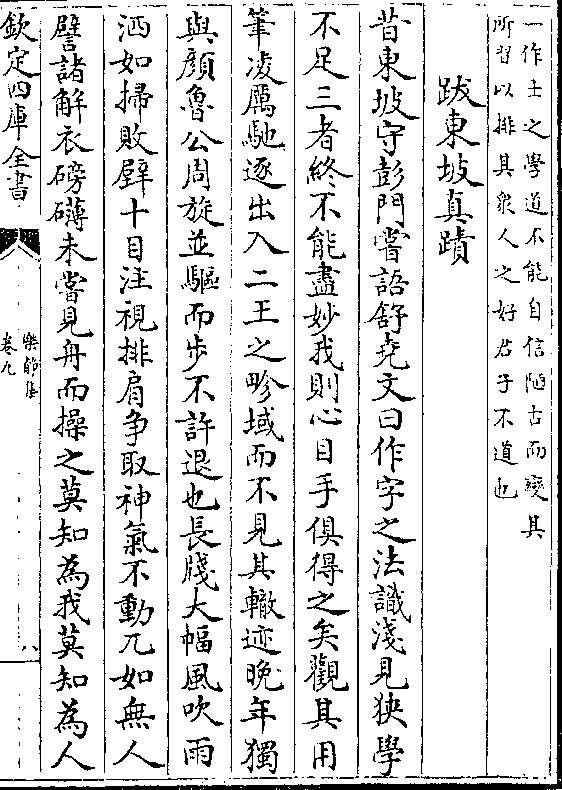 一作士之學道不能自信陋古而變其
所習以排其衆人之好君子不道也
跋東坡真蹟
昔東坡守彭門嘗語舒堯文曰作字之法識淺見狹學
不足三者終不能盡妙我則心目手俱得之矣觀其用
筆凌厲馳逐出入二王之畛域而不見其轍迹晚年獨
與顔魯公周旋並驅而步不許退也長牋大幅風吹雨
洒如掃敗壁十目注視排肩争取神氣不動兀如無人
譬諸解衣磅礴未嘗見舟而操之莫知為我莫知為人
欽定四庫全書
樂静集
卷九
八